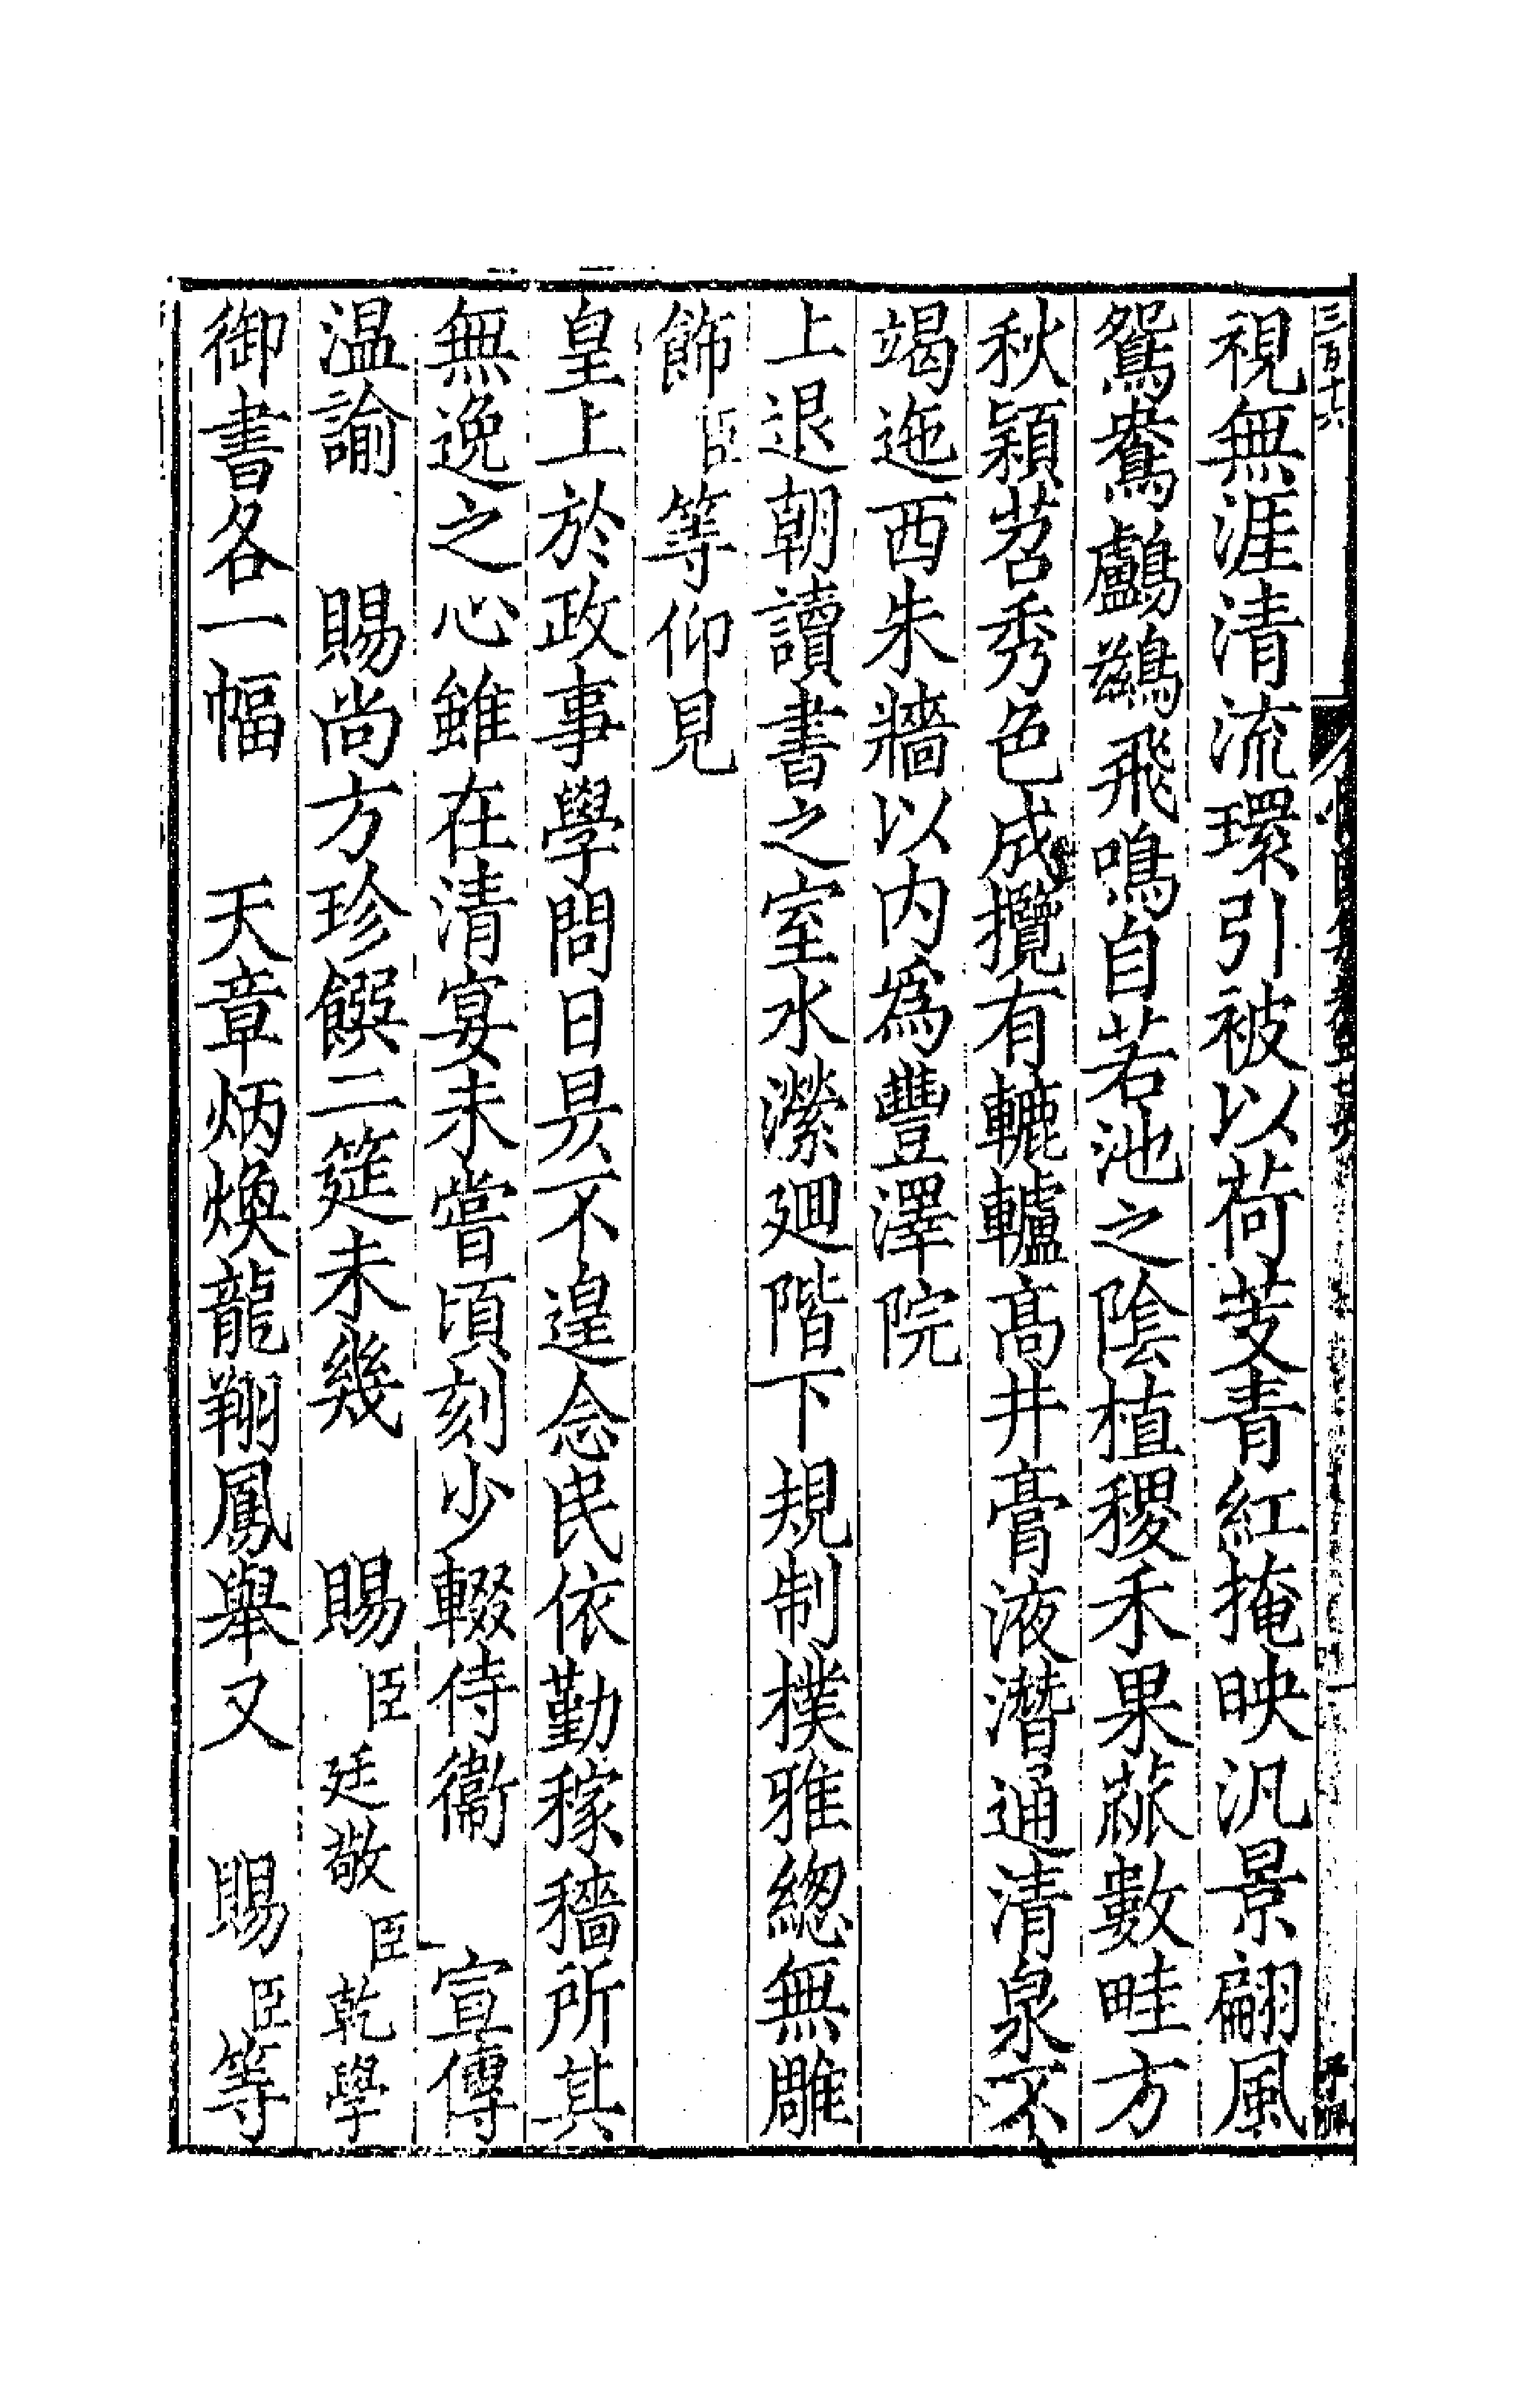 三百十六
視無涯清流環引被以荷芰青紅掩映汎景翩風
鴛鴦鸕鷀飛鳴自若池之陰植稷禾果蓏數畦方
秋穎苕秀色成攬有轆轤高井膏液潛通清泉不
竭迤西朱牆以内為豐澤院
上退朝讀書之室水瀠廻階下規制樸雅緫無雕
飾臣等仰見
皇上於政事學問日昃不遑念民依勤稼穡所其
無逸之心雖在清宴未嘗頃刻少輟侍衞　宣傳
温諭　賜尚方珍饌二筵未幾　賜臣廷敬臣乾學
御書各一幅　天章炳煥龍翔鳳舉又　賜臣等